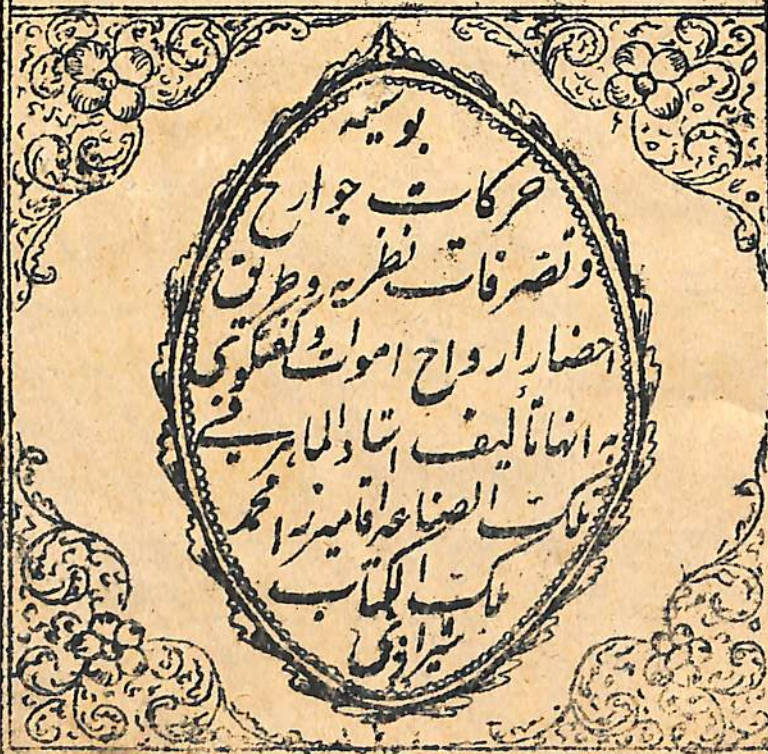 بوسیله
حرکات جوارح
و تصرفات نظریه و طریق
احضار ارواح اموات و گفتگوی
به انها تألیف استاد الماهر فی
تلک الصناعه اقا میرزا محمد
ملک الکتاب
شیرازی